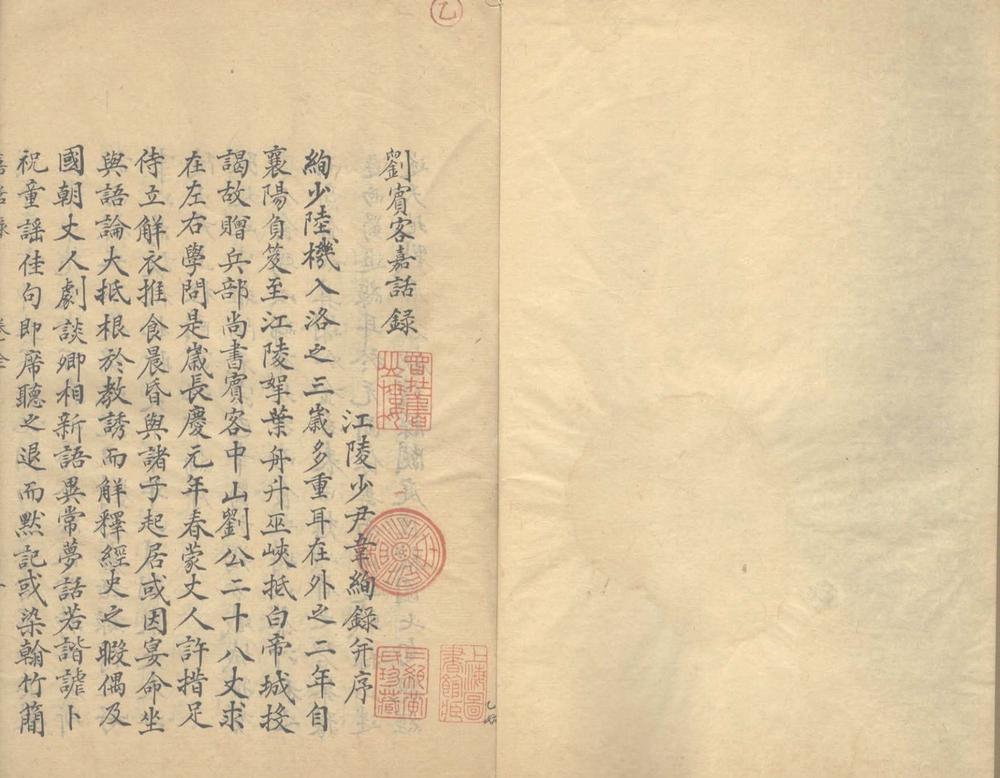 乙
劉賓客嘉話録
江陵少尹韋絢録并序
絢少陸機入洛之三歲多重耳在外之二年自
襄陽負笈至江陵拏葉舟升巫峽抵白帝城投
謁故贈兵部尚書賓客中山劉公二十八丈求
在左右學問是歲長慶元年春蒙丈人許措足
侍立解衣推食晨昏與諸子起居或因宴命坐
與語論大抵根於教誘而解釋經史之暇偶及
國朝丈人劇談卿相新語異常夢話若諧謔卜
祝童謠佳句即席聽之退而默記或染翰竹簡
上海圖書館藏